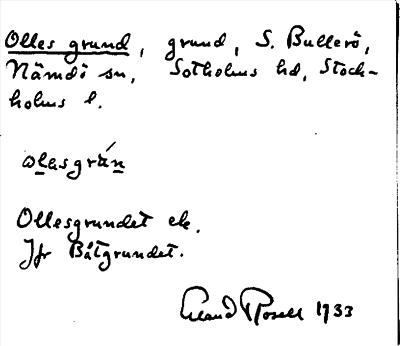 Olles grund, grund, S. Bullerö,
Nämdö sn, Sotholms hd, Stock-
holms l.
olasgrún
Ollesgrundet ek.
Jfr Båtgrundet.
Erland Rosell 1933